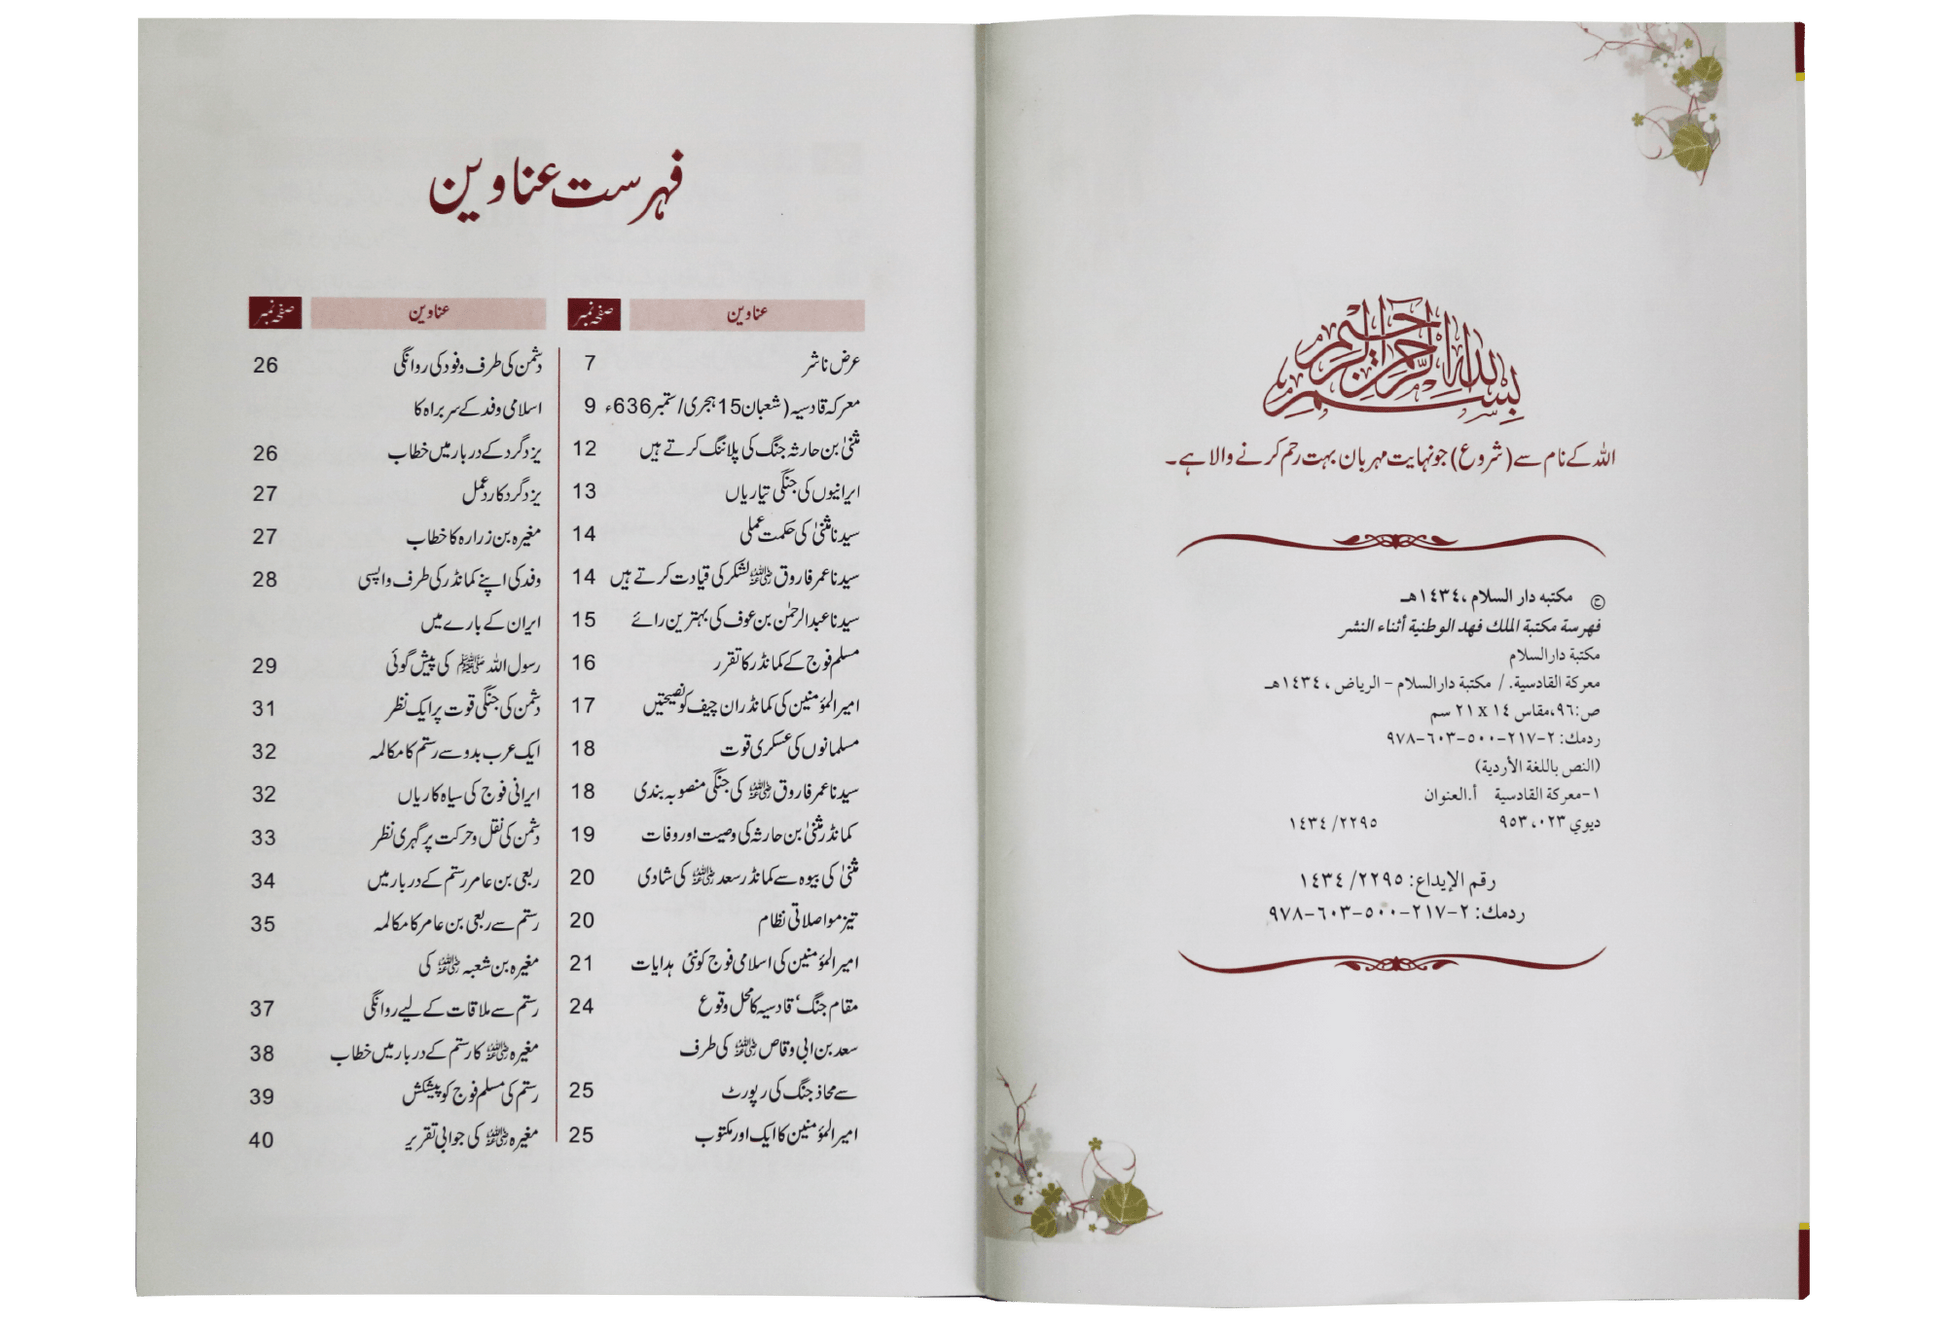 بسم الله الرحمن الرحيم
اللہ کے نام سے (شروع) جو نہایت مہربان بہت رحم کرنے والا ہے۔
ح مكتبه دار السلام ،١٤٣٤هـ
فهرسة مكتبة الملك فهد الوطنية أثناء النشر
مكتبة دارالسلام
معركة القادسية. / مكتبة دارالسلام – الرياض ، ١٤٣٤هـ
ص:٩٦،مقاس ١٤ x ٢١ سم
ردمك: ٢-٢١٧-٥٠٠-٦٠٣-٩٧٨
(النص باللغة الأردية)
١-معركة القادسية أ.العنوان
ديوي ٩٥٣،٠٢٣ ١٤٣٤/٢٢٩٥
رقم الإيداع: ١٤٣٤/٢٢٩٥
ردمك: ٢-٢١٧-٥٠٠-٦٠٣-٩٧٨
فہرست عناوین
عناوین صفحہ نمبر
عرض ناشر 7
معرکہ قادسیہ (شعبان 15 ہجری/ستمبر 636ء 9
مثنیٰ بن حارثہ جنگ کی پلاننگ کرتے ہیں 12
ایرانیوں کی جنگی تیاریاں 13
سیدنا مثنیٰ کی حکمت عملی 14
سیدنا عمر فاروق رضی اللہ عنہ لشکر کی قیادت کرتے ہیں 14
سیدنا عبدالرحمٰن بن عوف کی بہترین رائے 15
مسلم فوج کے کمانڈر کا تقرر 16
امیر المؤمنین کی کمانڈر ان چیف کو نصیحتیں 17
مسلمانوں کی عسکری قوت 18
سیدنا عمر فاروق رضی اللہ عنہ کی جنگی منصوبہ بندی 18
کمانڈر مثنیٰ بن حارثہ کی وصیت اور وفات 19
مثنیٰ کی بیوہ سے کمانڈر سعد رضی اللہ عنہ کی شادی 20
تیز مواصلاتی نظام 20
امیر المؤمنین کی اسلامی فوج کو نئی ہدایات 21
مقام جنگ، قادسیہ کا محل وقوع 24
سعد بن ابی وقاص رضی اللہ عنہ کی طرف
سے محاذ جنگ کی رپورٹ 25
امیر المؤمنین کا ایک اور مکتوب 25
عناوین صفحہ نمبر
دشمن کی طرف وفود کی روانگی 26
اسلامی وفد کے سربراہ کا
یزدگرد کے دربار میں خطاب 26
یزدگرد کا ردعمل 27
مغیرہ بن زرارہ کا خطاب 27
وفد کی اپنے کمانڈر کی طرف واپسی 28
ایران کے بارے میں
رسول اللہ ﷺ کی پیش گوئی 29
دشمن کی جنگی قوت پر ایک نظر 31
ایک عرب بدو سے رستم کا مکالمہ 32
ایرانی فوج کی سیاہ کاریاں 32
دشمن کی نقل و حرکت پر گہری نظر 33
ربعی بن عامر رستم کے دربار میں 34
رستم سے ربعی بن عامر کا مکالمہ 35
مغیرہ بن شعبہ رضی اللہ عنہ کی
رستم سے ملاقات کے لیے روانگی 37
مغیرہ رضی اللہ عنہ کا رستم کے دربار میں خطاب 38
رستم کی مسلم فوج کو پیشکش 39
مغیرہ رضی اللہ عنہ کی جوابی تقریر 40